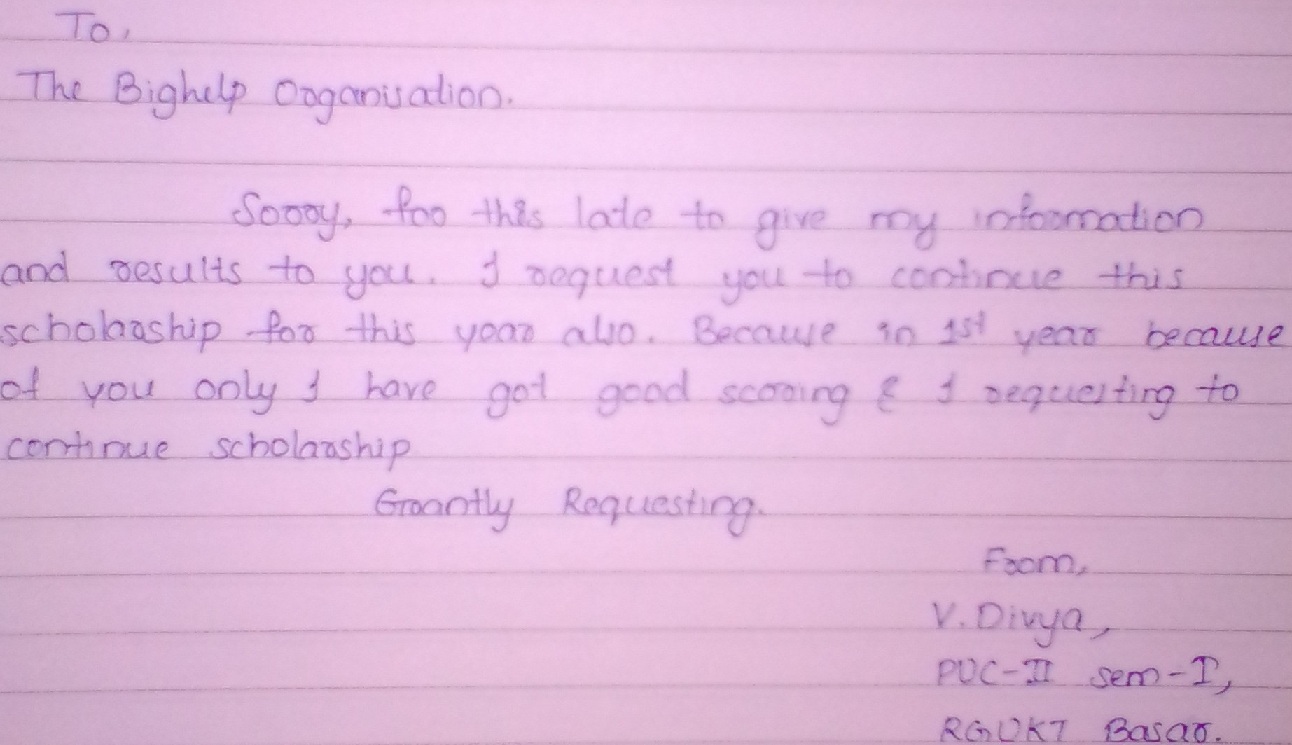 To,
The Bighelp Organisation.
Sorry, for this late to give my information
and results to you. I request you to continue this
scholarship for this year also. Because in 1st year because
of you only I have got good scoring & I requesting to
continue scholarship
Grantly Requesting.
From,
V. Divya,
PUC-II sem-I,
RGUKT Basar.